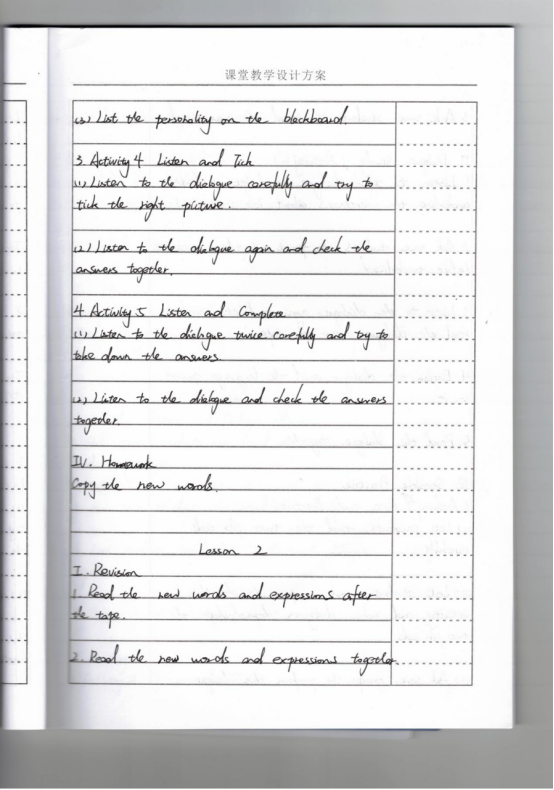 课堂教学设计方案
(3) List the personality on the blackboard.
3. Activity 4 Listen and Tick
(1) Listen to the dialogue carefully and try to
tick the right picture.
(2) Listen to the dialogue again and check the
answers together.
4 Activity 5 Listen and Complete
(1) Listen to the dialogue twice carefully and try to
take down the answers
(2) Listen to the dialogue and check the answers
together.
IV. Homework
Copy the new words.
Lesson 2
I. Revision
1. Read the new words and expressions after
the tape.
2. Read the new words and expressions together.